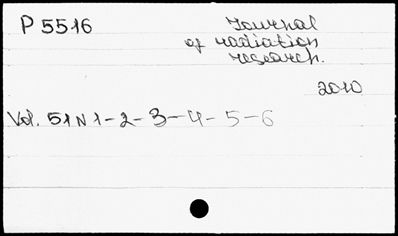 P 5516
Journal
of radiation
research.
2010
Vol. 51 N 1-2-3-4-5-6